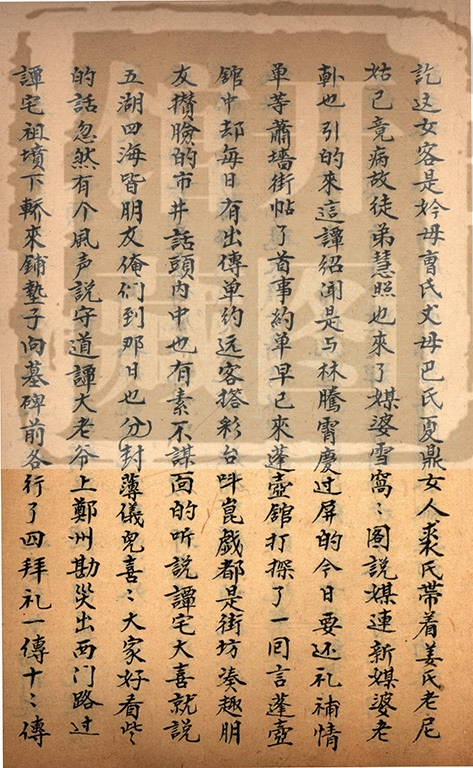 訖这女客是妗母曹氏丈母巴氏夏鼎女人裘氏帶着姜氏老尼
姑已竟病故徒弟慧照也來了媒婆雪窩〻图說媒連新媒婆老
也引的來這譚紹聞是与林騰霄慶过屏的今日要还礼補情
单等蕭墻街帖了首事約单早已來蓬壺舘打探了一回言蓬壺
舘中却每日有出傳单約远客搭彩台呌崑戲都是街坊湊趣朋
友攅臉的市井話頭内中也有素不謀面的听說譚宅大喜就說
五湖四海皆朋友俺们到那日也分封薄儀兒喜〻大家好看些
的話忽然有个風声說守道譚大老爷上鄭州勘災出西门路过
譚宅祖墳下轎來鋪墊子向墓碑前各行了四拜礼一傳十〻傳